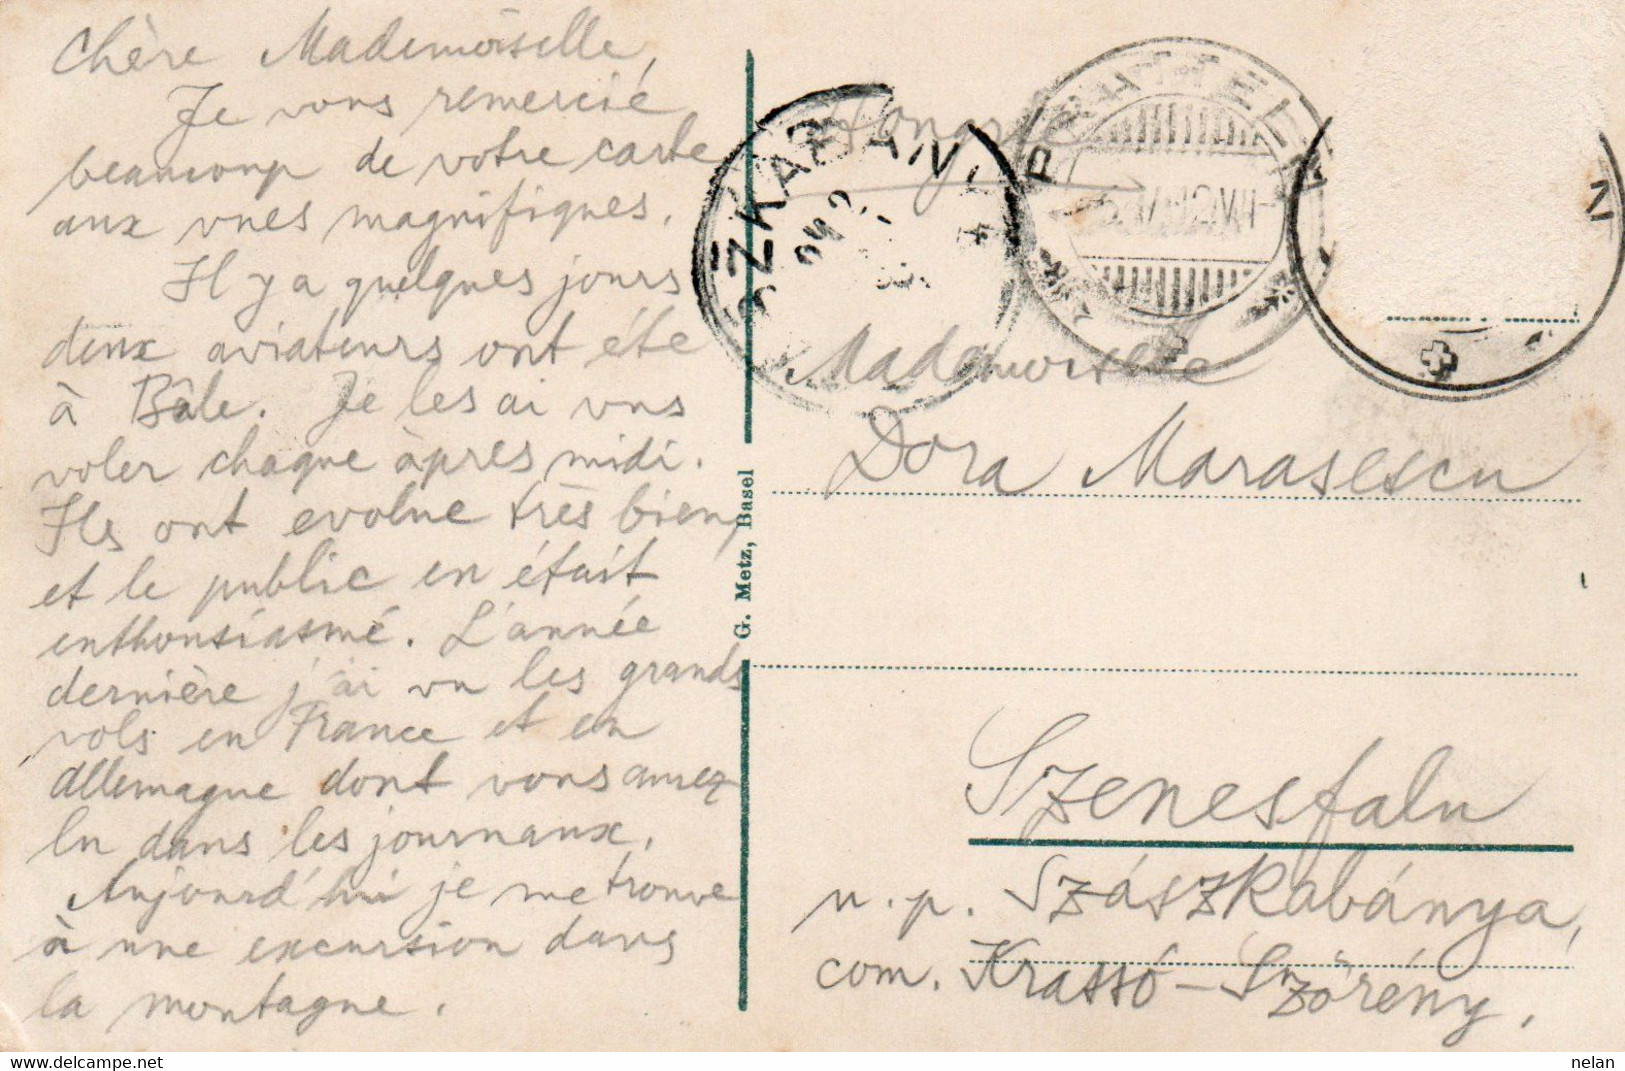 Chère Mademoiselle,
Je vous remercié
beaucoup de votre carte
aux vues magnifiques.
Il y a quelques jours
deux aviateurs ont été
à Bâle. Je les ai vus
voler chaque àprès midi.
Ils ont evolue très bien,
et le public en était
enthousiasmé. L'année
dernière j'ai vu les grands
vols en France et en
Allemagne dont vous aurez
lu dans les journaux.
Aujourd'hui je me trouve
à une excursion dans
la montagne.
G. Metz, Basel
Hongrie
PRATTELN
Mademoiselle
Dora Marasescu
Szenesfalu
u. p. Szászkabánya,
com. Krassó-Szörény.
nelan